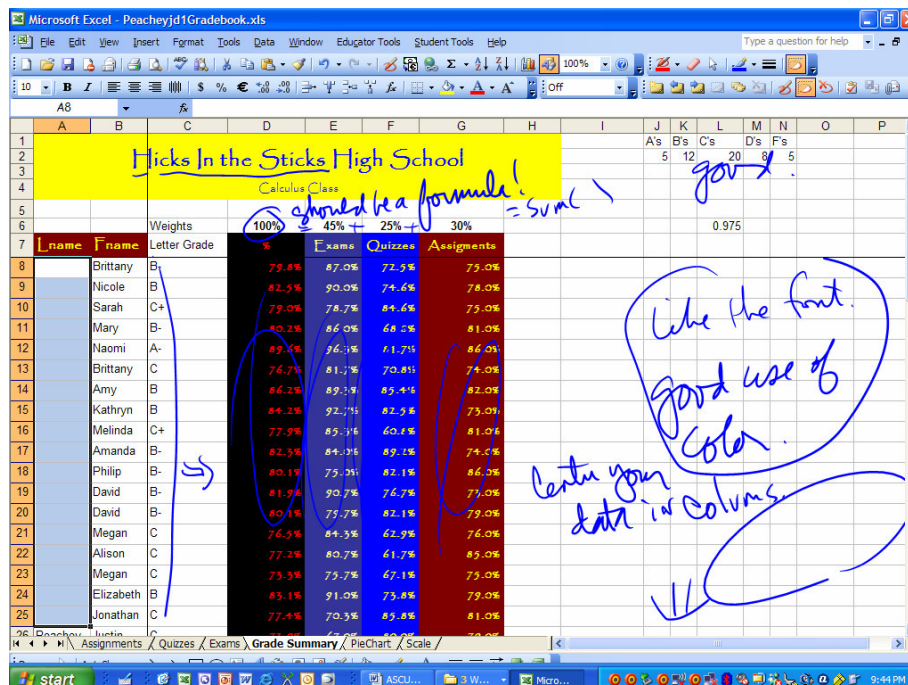 Microsoft Excel - Peacheyjd1Gradebook.xls
File Edit View Insert Format Tools Data Window Educator Tools Student Tools Help
Type a question for help
100%
10 B I U $ % € Off
A8 fx
A B C D E F G H I J K L M N O P
1 A's B's C's D's F's
2 Hicks In the Sticks High School 5 12 20 8 5
3 good.
4 Calculus Class
should be a formula!
= sum( )
5
6 Weights 100% 45% 25% 30% 0.975
7 Lname Fname Letter Grade % Exams Quizzes Assigments
8 Brittany B- 79.8% 87.0% 72.5% 75.0%
9 Nicole B 82.5% 90.0% 74.6% 78.0%
10 Sarah C+ 79.0% 78.7% 84.6% 75.0%
11 Mary B- 80.2% 86.0% 81.0%
12 Naomi A- 89.6% 96.3% 86.0%
13 Brittany C 76.7% 81.7% 70.8% 74.0%
14 Amy B 86.2% 89.3% 85.4% 82.0%
15 Kathryn B 84.2% 92.7% 82.5% 75.0%
16 Melinda C+ 77.9% 85.3% 81.0%
17 Amanda B- 82.3% 84.0% 89.2% 74.0%
18 Philip B- 80.1% 75.0% 82.1% 86.0%
19 David B- 81.9% 90.7% 76.7% 75.0%
20 David B- 80.1% 75.7% 82.1% 79.0%
21 Megan C 76.5% 84.3% 62.9% 76.0%
22 Alison C 77.2% 80.7% 61.7% 85.0%
23 Megan C 73.3% 75.7% 67.1% 75.0%
24 Elizabeth B 83.1% 91.0% 73.8% 79.0%
25 Jonathan C 77.4% 70.3% 85.8% 81.0%
26 Peachey Justin C
Like the font.
good use of
color.
Center your
data in colums.
Assignments Quizzes Exams Grade Summary PieChart Scale
start ASCU... 3 W... Micro... 9:44 PM